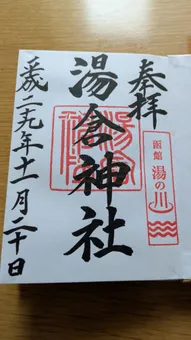 奉拝
函館
湯の川
湯倉神社
平成二九年十一月二十日